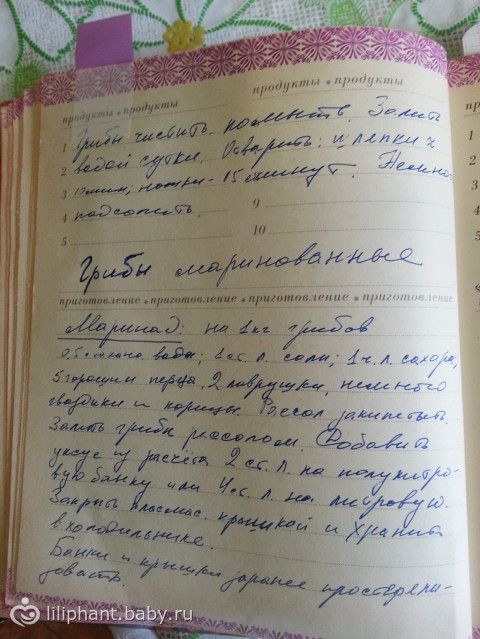 продукты • продукты
продукты • продукты
1 Грибы чистить, помыть. Залить
2 водой сутки. Отварить: шляпки
3 10 мин, ножки - 15 минут. Немно-
4 подсолить.
9
5
10
Грибы маринованные
приготовление • приготовление • приготовление • приготовление
Маринад: на 1 кг грибов
0,5 стакана воды; 1 ст. л. соли; 1 ч. л. сахара,
5 горошин перца, 2 лаврушки, немного
гвоздики и корицы. Рассол закипятить.
Залить грибы рассолом. Добавить
уксус из расчёта 2 ст. л. на полулитро-
вую банку или 4 ст. л. на литровую.
Закрыть пласмас. крышкой и хранить
в холодильнике.
Банки и крышки заранее простерели-
зовать.
liliphant.baby.ru